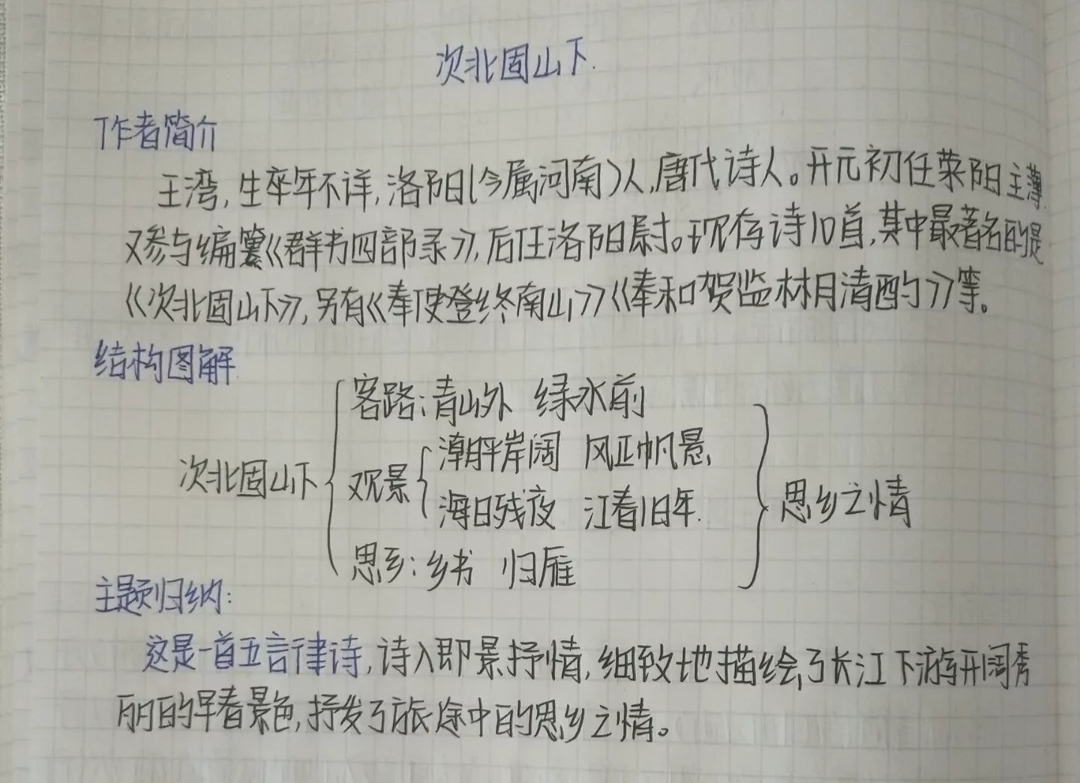 次北固山下.
作者简介
王湾,生卒年不详,洛阳(今属河南)人,唐代诗人。开元初任荥阳主薄
又参与编纂《群书四部录》,后任洛阳尉。现存诗10首,其中最著名的是
《次北固山下》,另有《奉使登终南山》《奉和贺监林月清酌》等。
结构图解
客路:青山外 绿水前
潮平岸阔 风正帆悬
次北固山下 观景
海日残夜 江春旧年
思乡之情
思乡:乡书 归雁
主题归纳:
这是一首五言律诗,诗人即景抒情,细致地描绘了长江下游开阔秀
丽的早春景色,抒发了旅途中的思乡之情。